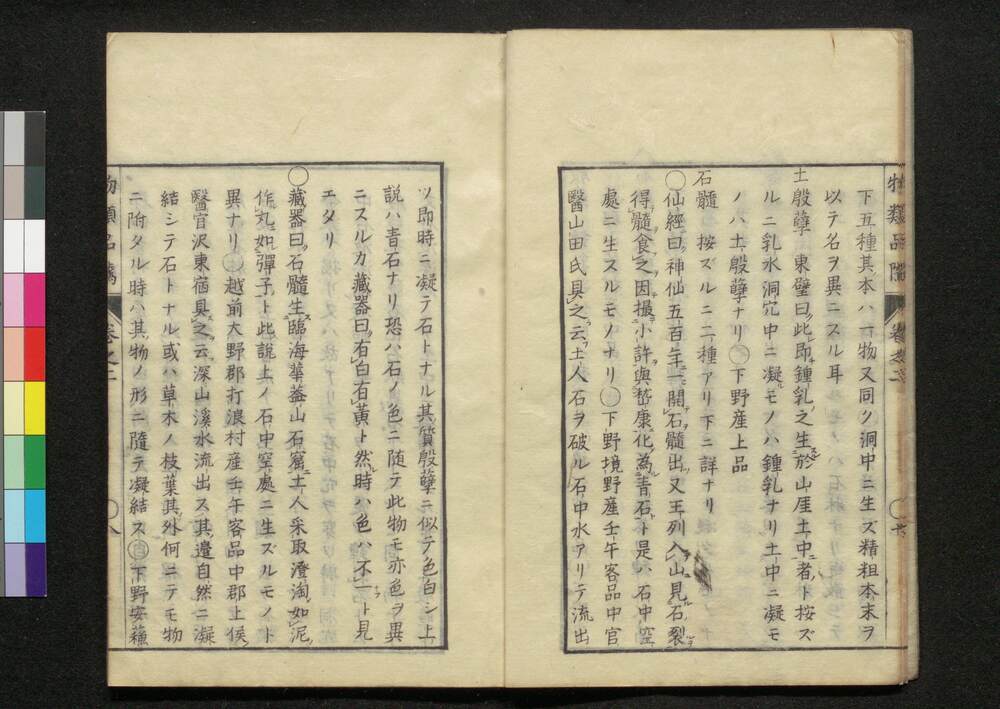 物類品隲 巻之二
下五種其本ハ一物又同ク洞中ニ生ズ精粗本末ヲ
以テ名ヲ異ニスル耳
土殷孽 東璧曰此即鍾乳之生於山厓土中者ト按ズ
ルニ乳水洞穴中ニ凝モノハ鍾乳ナリ土中ニ凝モ
ノハ土殷孽ナリ○下野産上品
石髓 按ズルニ二種アリ下ニ詳ナリ
○仙經曰神仙五百年一開石髓出又王列入山見石裂
得髓食之因撮小許與嵆康化為青石ト是ハ石中空
處ニ生スルモノナリ○下野境野産壬午客品中官
醫山田氏具之云土人石ヲ破ル石中水アリテ流出
ツ即時ニ凝テ石トナル其質殷孽ニ似テ色白シ上
説ハ青石ナリ恐ハ石ノ色ニ随テ此物モ亦色ヲ異
ニスルカ藏器曰有白有黄ト然時ハ色ハ不一ト見
エタリ
○藏器曰石髓生臨海華蓋山石窟土人采取澄淘如泥
作丸如彈子ト此説上ノ石中空處ニ生ズルモノト
異ナリ○越前大野郡打浪村産壬午客品中郡上侯
醫官沢東宿具之云深山溪水流出ス其邉自然ニ凝
結シテ石トナル或ハ草木ノ枝葉其外何ニテモ物
ニ附タル時ハ其物ノ形ニ隨テ凝結ス○下野安蘓
物類品隲 巻之二